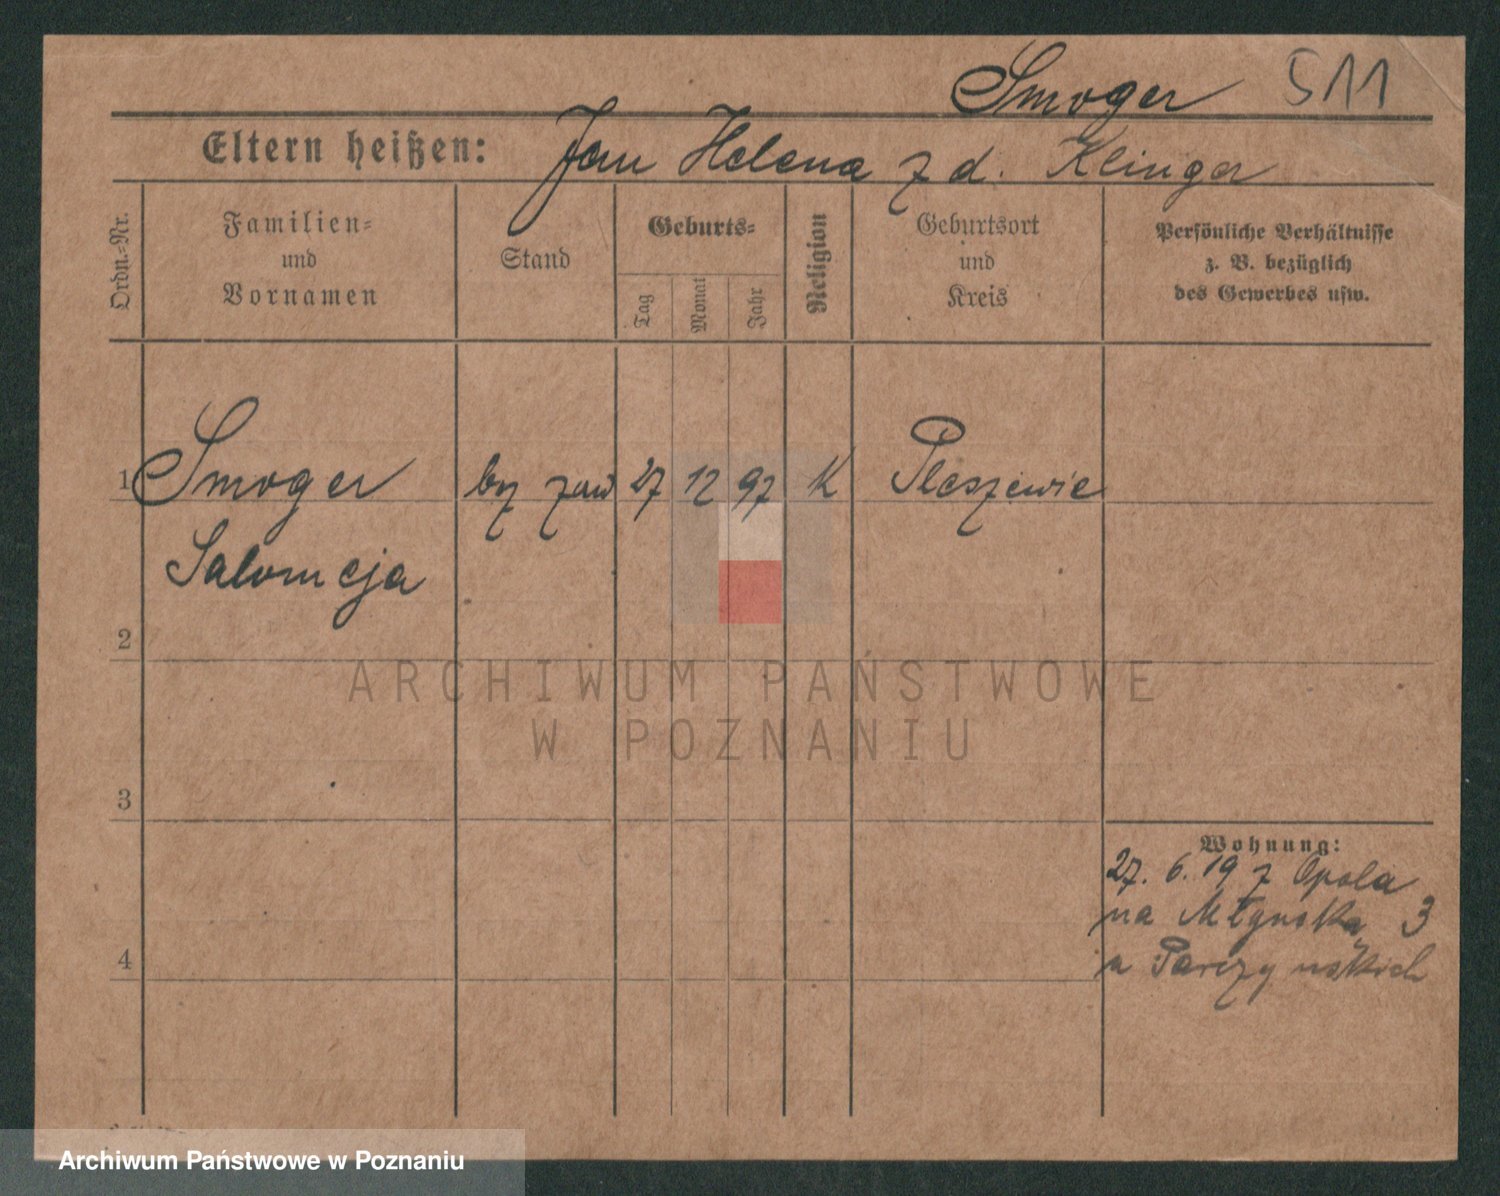 Smoger 511
Eltern heißen: Jan Helena z d. Klinger
Ordn.-Nr.
Familien-
und
Vornamen
Stand
Geburts-
Tag
Monat
Jahr
Religion
Geburtsort
und
Kreis
Persönliche Verhältnisse
z. B. bezüglich
des Gewerbes usw.
1 Smoger bez zaw 27 12 97 K Pleszewie
Salomeja
2
ARCHIWUM PAŃSTWOWE
W POZNANIU
3
Wohnung:
27. 6. 19 z Opola
na Młyńska 3
4 u Parczyńskich
Archiwum Państwowe w Poznaniu